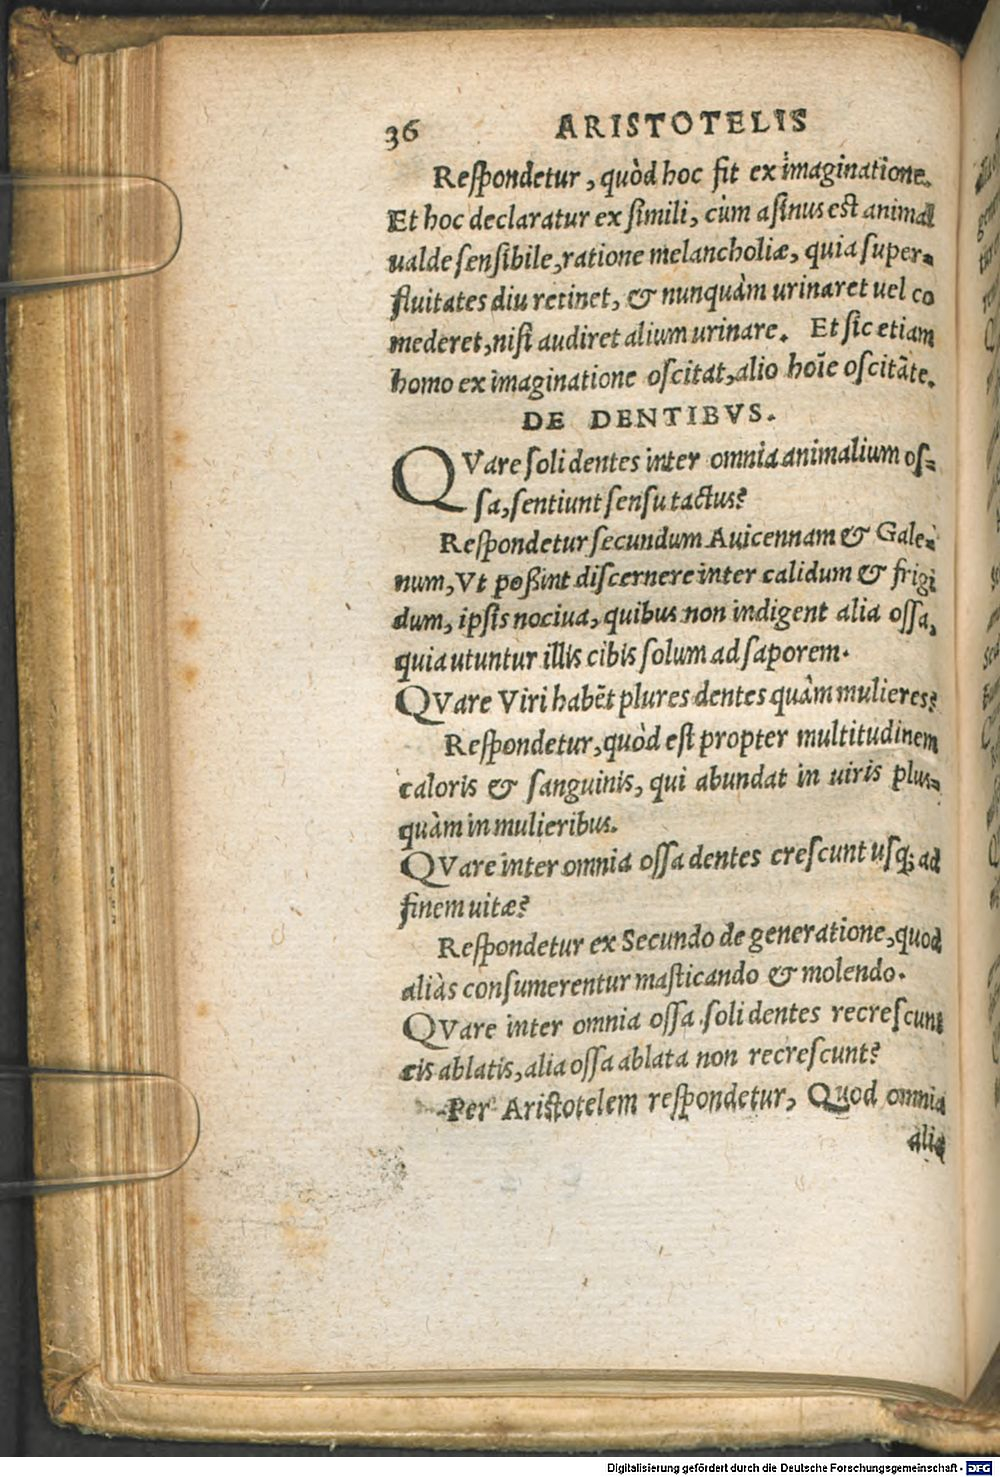 36 ARISTOTELIS
Reſpondetur, quòd hoc fit ex imaginatione.
Et hoc declaratur ex ſimili, cùm aſinus est animal
ualde ſenſibile, ratione melancholiæ, quia ſuper-
fluitates diu retinet, & nunquàm urinaret uel co
mederet, niſi audiret alium urinare. Et ſic etiam
homo ex imaginatione oſcitat, alio hoīe oſcitāte.
DE DENTIBVS.
QVare ſoli dentes inter omnia animalium oſ-
ſa, ſentiunt ſenſu tactus?
Reſpondetur ſecundum Auicennam & Gale-
num, Vt poßint diſcernere inter calidum & frigi
dum, ipſis nociua, quibus non indigent alia oſſa,
quia utuntur illis cibis ſolum ad ſaporem.
QVare Viri habēt plures dentes quàm mulieres?
Reſpondetur, quòd eſt propter multitudinem
caloris & ſanguinis, qui abundat in uiris plus-
quàm in mulieribus.
QVare inter omnia oſſa dentes creſcunt uſq; ad
finem uitæ?
Reſpondetur ex Secundo de generatione, quod
aliàs conſumerentur maſticando & molendo.
QVare inter omnia oſſa ſoli dentes recreſcunt
eis ablatis, alia oſſa ablata non recreſcunt?
Per Ariſtotelem reſpondetur, Quod omnia
alia
Digitalisierung gefördert durch die Deutsche Forschungsgemeinschaft - DFG